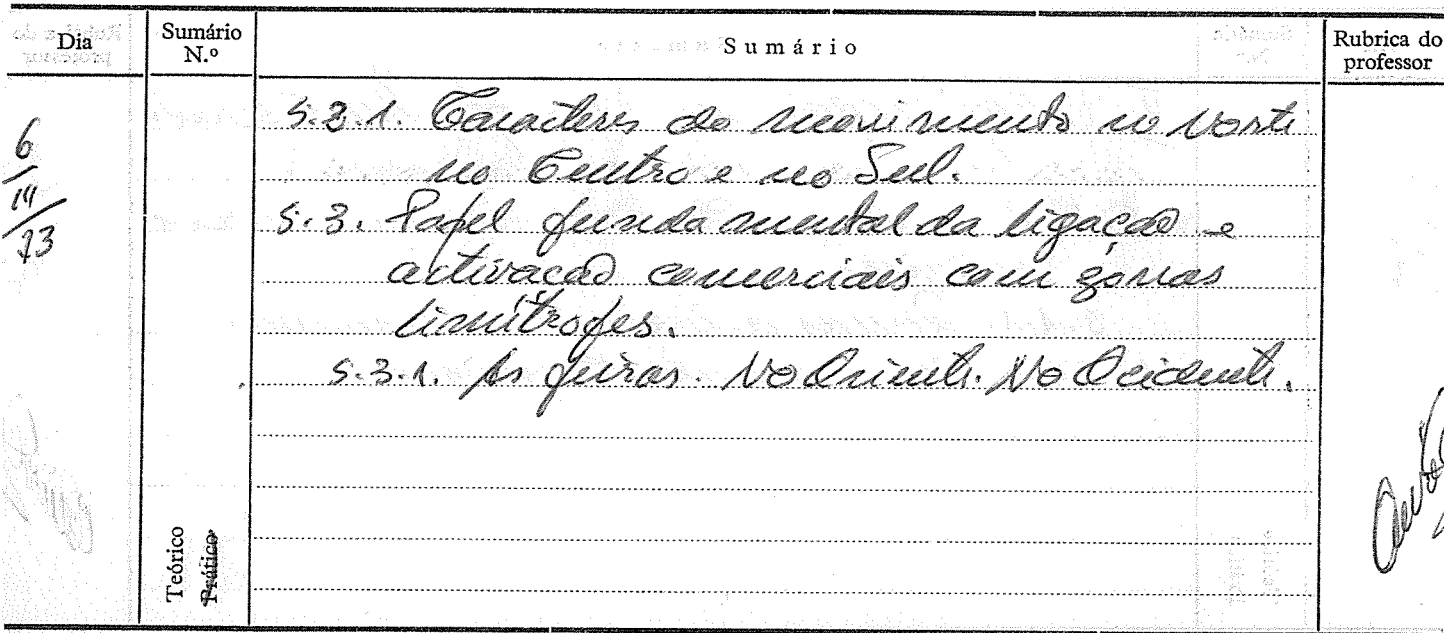 Dia
Sumário N.º
Sumário
Rubrica do professor
6
73
5.2.1. Caracteres do movimento no Norte
no Centro e no Sul.
5.3. Papel fundamental da ligação e
activação comerciais com zonas
limítrofes.
5.3.1. As feiras. No Oriente. No Ocidente.
Teórico
Prático